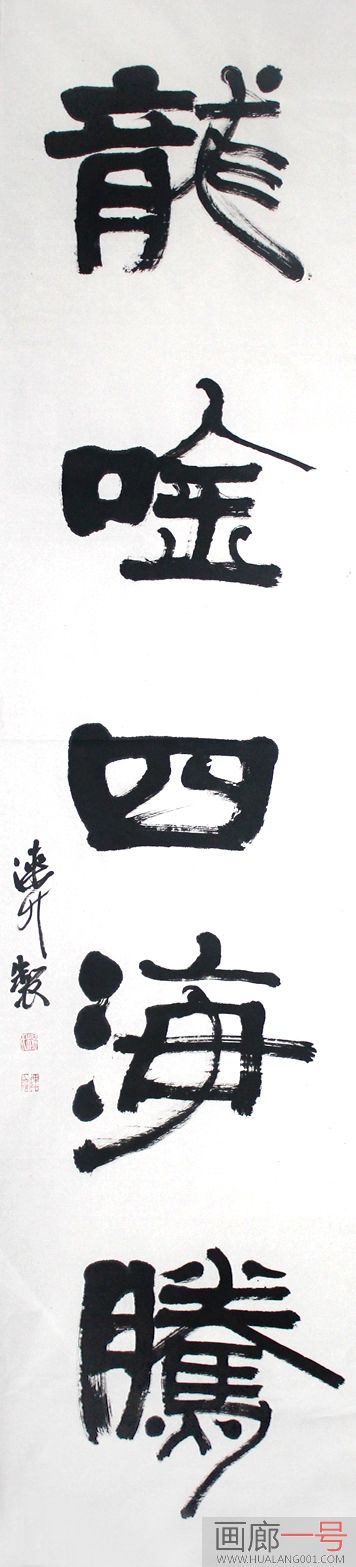 龍唫四海騰
画廊一号
WWW.HUALANG001.COM